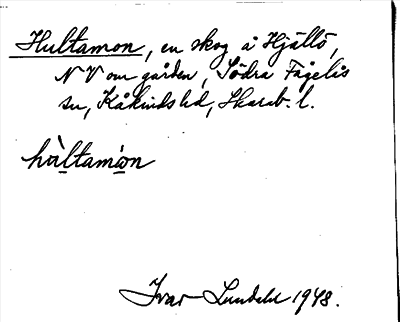 Hultamon, en skog å Hjällö,
NV om gården, Södra Fågelås
sn, Kåkinds hd, Skarab. l.
hùltamón
Ivar Lundahl 1948.